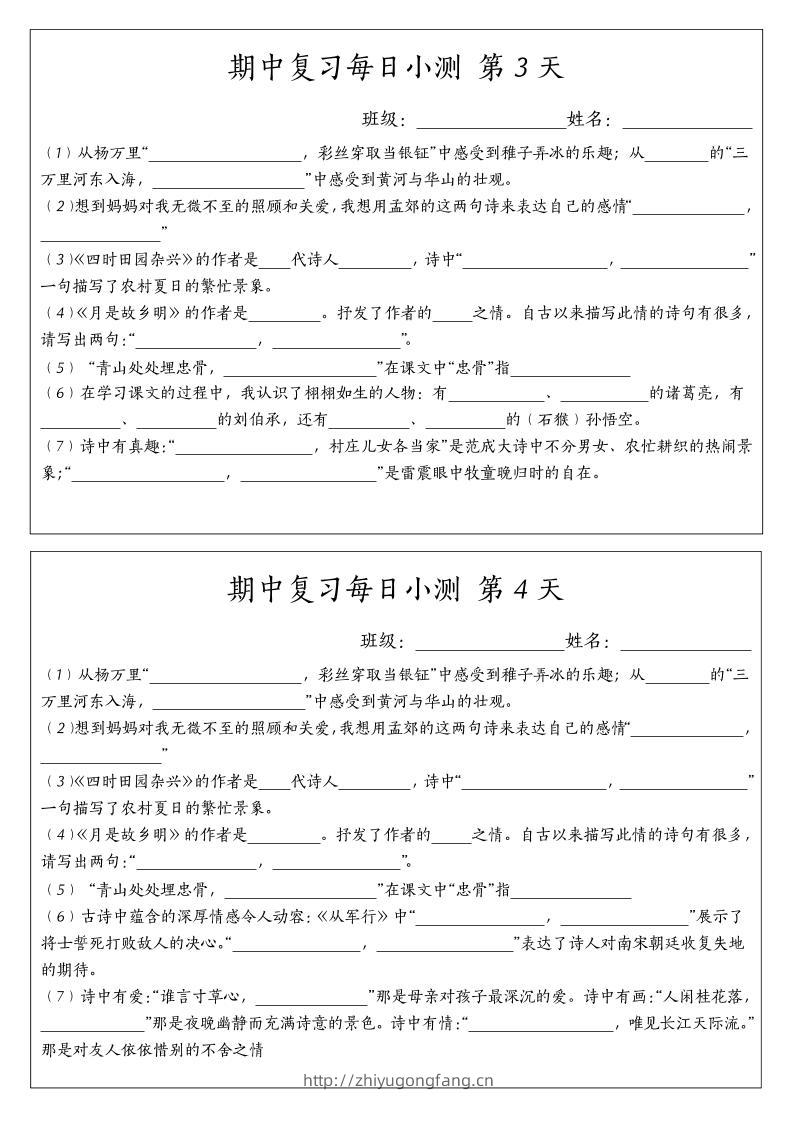 期中复习每日小测 第 3 天
班级：______________姓名：____________
（1）从杨万里“________________，彩丝穿取当银钲”中感受到稚子弄冰的乐趣；从________的“三
万里河东入海，___________________”中感受到黄河与华山的壮观。
（2）想到妈妈对我无微不至的照顾和关爱，我想用孟郊的这两句诗来表达自己的感情“______________，
_______________”
（3）《四时田园杂兴》的作者是____代诗人_________，诗中“__________________，________________”
一句描写了农村夏日的繁忙景象。
（4）《月是故乡明》的作者是_________。抒发了作者的_____之情。自古以来描写此情的诗句有很多，
请写出两句：“_______________，________________”。
（5）“青山处处埋忠骨，___________________”在课文中“忠骨”指_______________
（6）在学习课文的过程中，我认识了栩栩如生的人物：有____________、___________的诸葛亮，有
__________、__________的刘伯承，还有__________、__________的（石猴）孙悟空。
（7）诗中有真趣：“_________________，村庄儿女各当家”是范成大诗中不分男女、农忙耕织的热闹景
象；“___________________，_________________”是雷震眼中牧童晚归时的自在。
期中复习每日小测 第 4 天
班级：______________姓名：____________
（1）从杨万里“___________________，彩丝穿取当银钲”中感受到稚子弄冰的乐趣；从________的“三
万里河东入海，___________________”中感受到黄河与华山的壮观。
（2）想到妈妈对我无微不至的照顾和关爱，我想用孟郊的这两句诗来表达自己的感情“______________，
_______________”
（3）《四时田园杂兴》的作者是____代诗人_________，诗中“__________________，________________”
一句描写了农村夏日的繁忙景象。
（4）《月是故乡明》的作者是_________。抒发了作者的_____之情。自古以来描写此情的诗句有很多，
请写出两句：“_______________，________________”。
（5）“青山处处埋忠骨，___________________”在课文中“忠骨”指_______________
（6）古诗中蕴含的深厚情感令人动容：《从军行》中“________________，________________”展示了
将士誓死打败敌人的决心。“________________，_________________”表达了诗人对南宋朝廷收复失地
的期待。
（7）诗中有爱：“谁言寸草心，______________”那是母亲对孩子最深沉的爱。诗中有画：“人闲桂花落，
_____________”那是夜晚幽静而充满诗意的景色。诗中有情：“__________________，唯见长江天际流。”
那是对友人依依惜别的不舍之情
http://zhiyugongfang.cn